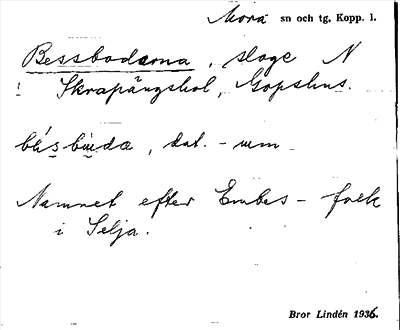 Mora sn och tg, Kopp. l.
Bessbodarna, sloge N
i Skrapängshol, Gopshus.
dat. - um
Namnet efter Embes - folk
i Selja.
Bror Lindén 1936.